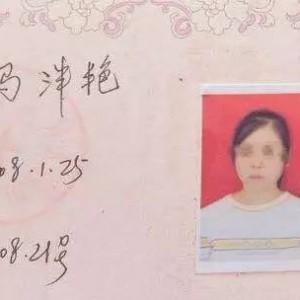 冯泮艳
08.1.25
08.21号